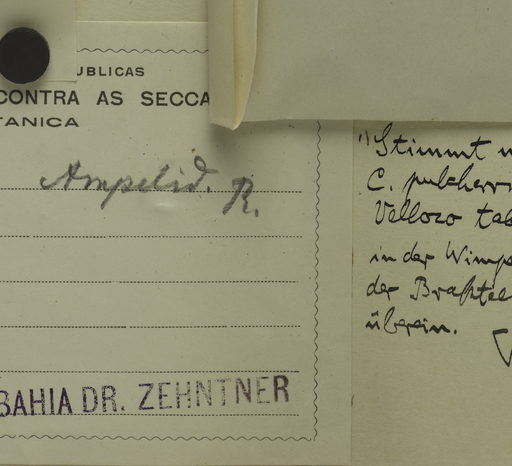 UBLICAS
CONTRA AS SECCA
TANICA
Ampelid. R.
BAHIA DR. ZEHNTNER
1) Stimmt
C. pulcherr
Vellozo tab
in der Wimp
der
überein.